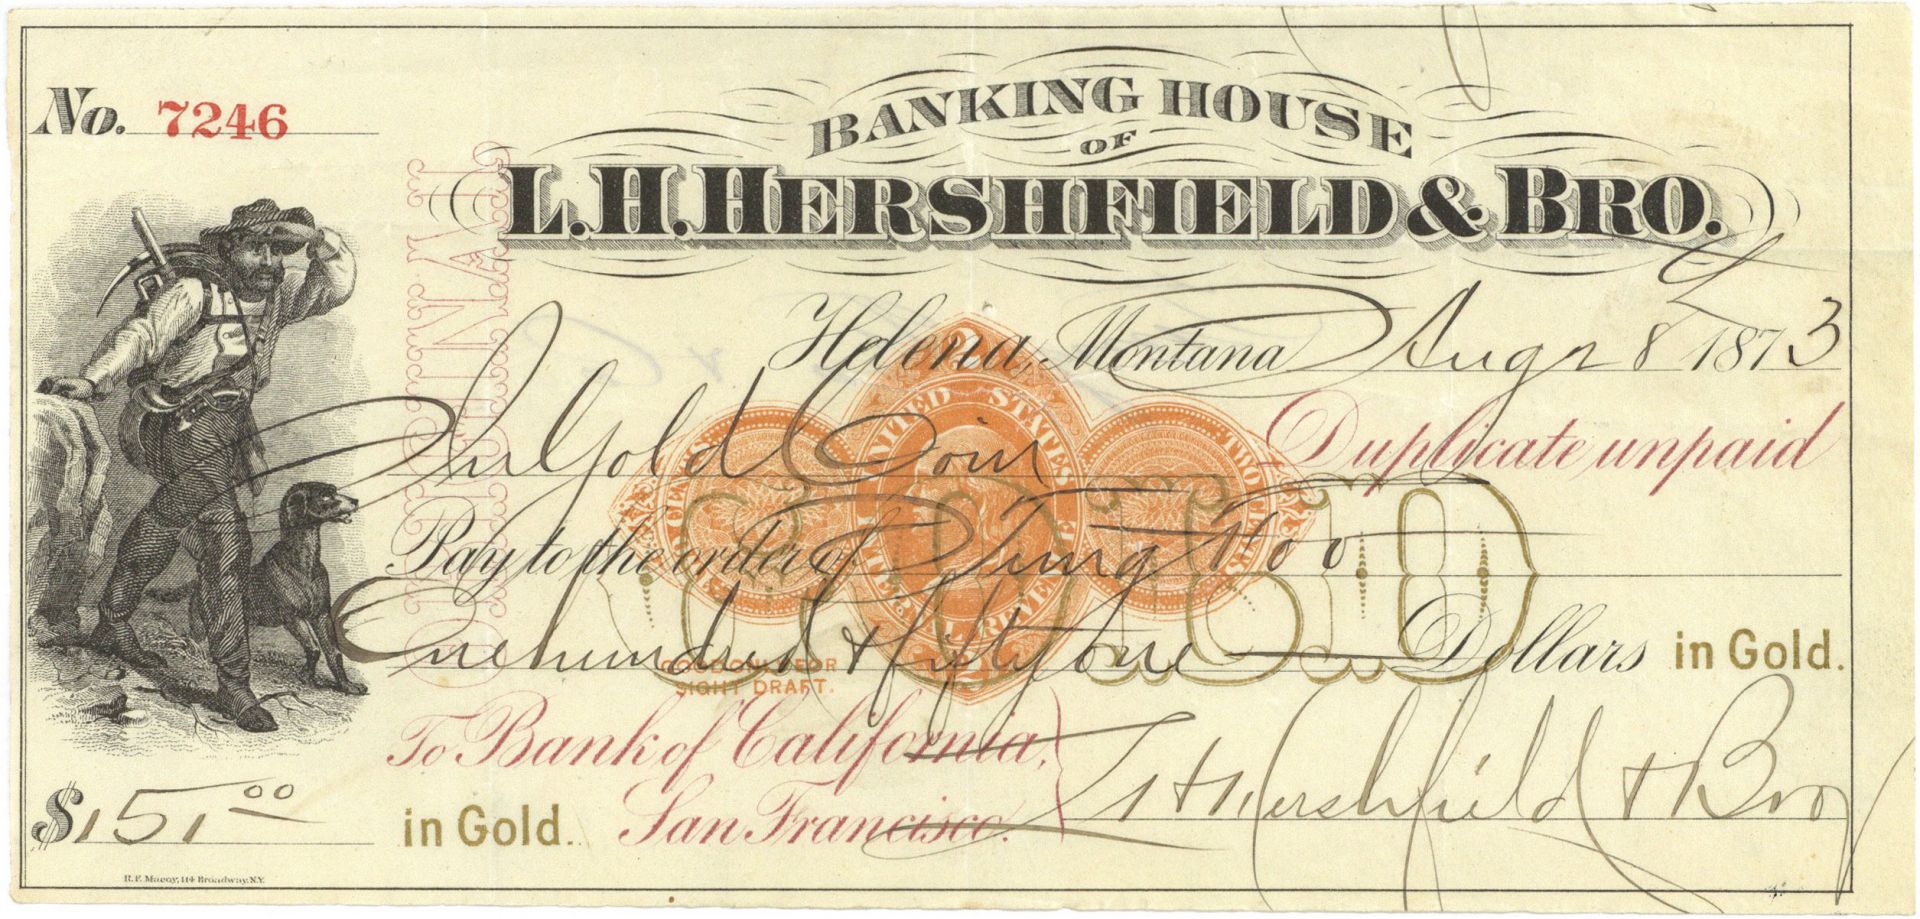 No. 7246
BANKING HOUSE
OF
L. H. HERSHFIELD & BRO.
Helena, Montana Aug 8 1873
ORIGINAL
In Gold Coin Duplicate unpaid
Pay to the order of Ting Hoo
UNITED STATES INTERNAL REVENUE
TWO CENTS
GOLD
One hundred & fifty one Dollars in Gold.
GOOD ONLY FOR
SIGHT DRAFT.
To Bank of California,
San Francisco.
L H Hershfield & Bro
$151.00 in Gold.
R. F. Macoy, 114 Broadway, N.Y.